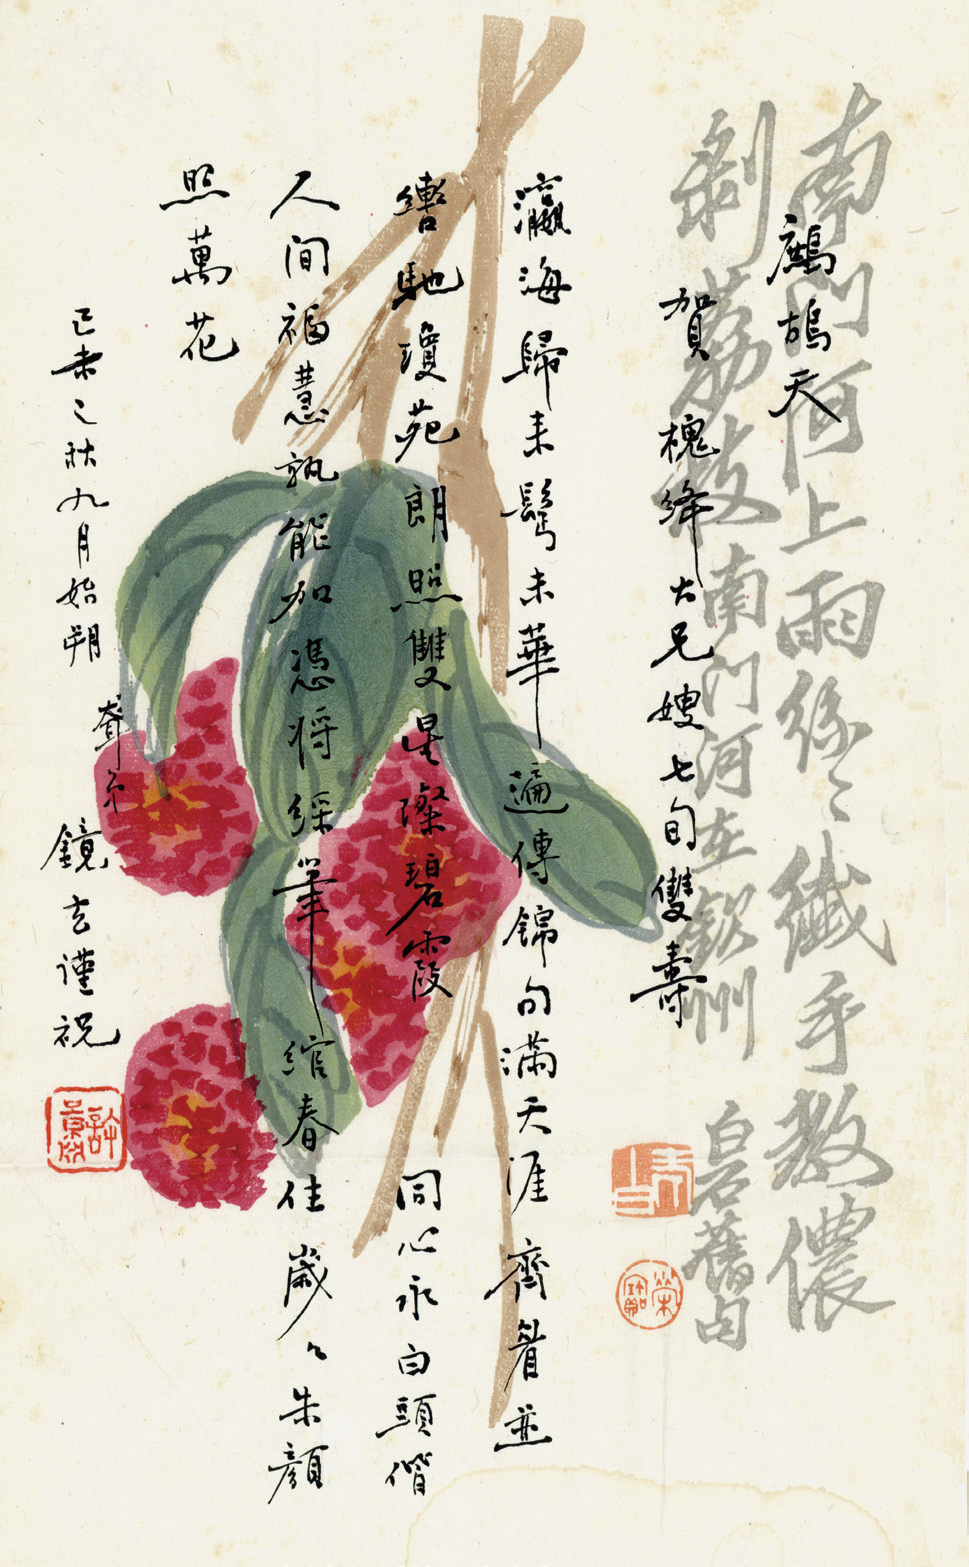 南門河上雨絲〻纖手教儂
剝荔枝南門河在欽州 白石舊句
鷓鴣天
賀槐絳大兄嫂七旬雙壽
瀛海歸来鬢未華 遍傳錦句滿天涯 齊眉並
轡馳瓊苑 朗照雙星璨碧霞 同心永白頭偕
人间福慧孰能加憑将綵筆綰春住歲〻朱顏
照萬花
己未之秋九月始朔
弟 鏡玄謹祝